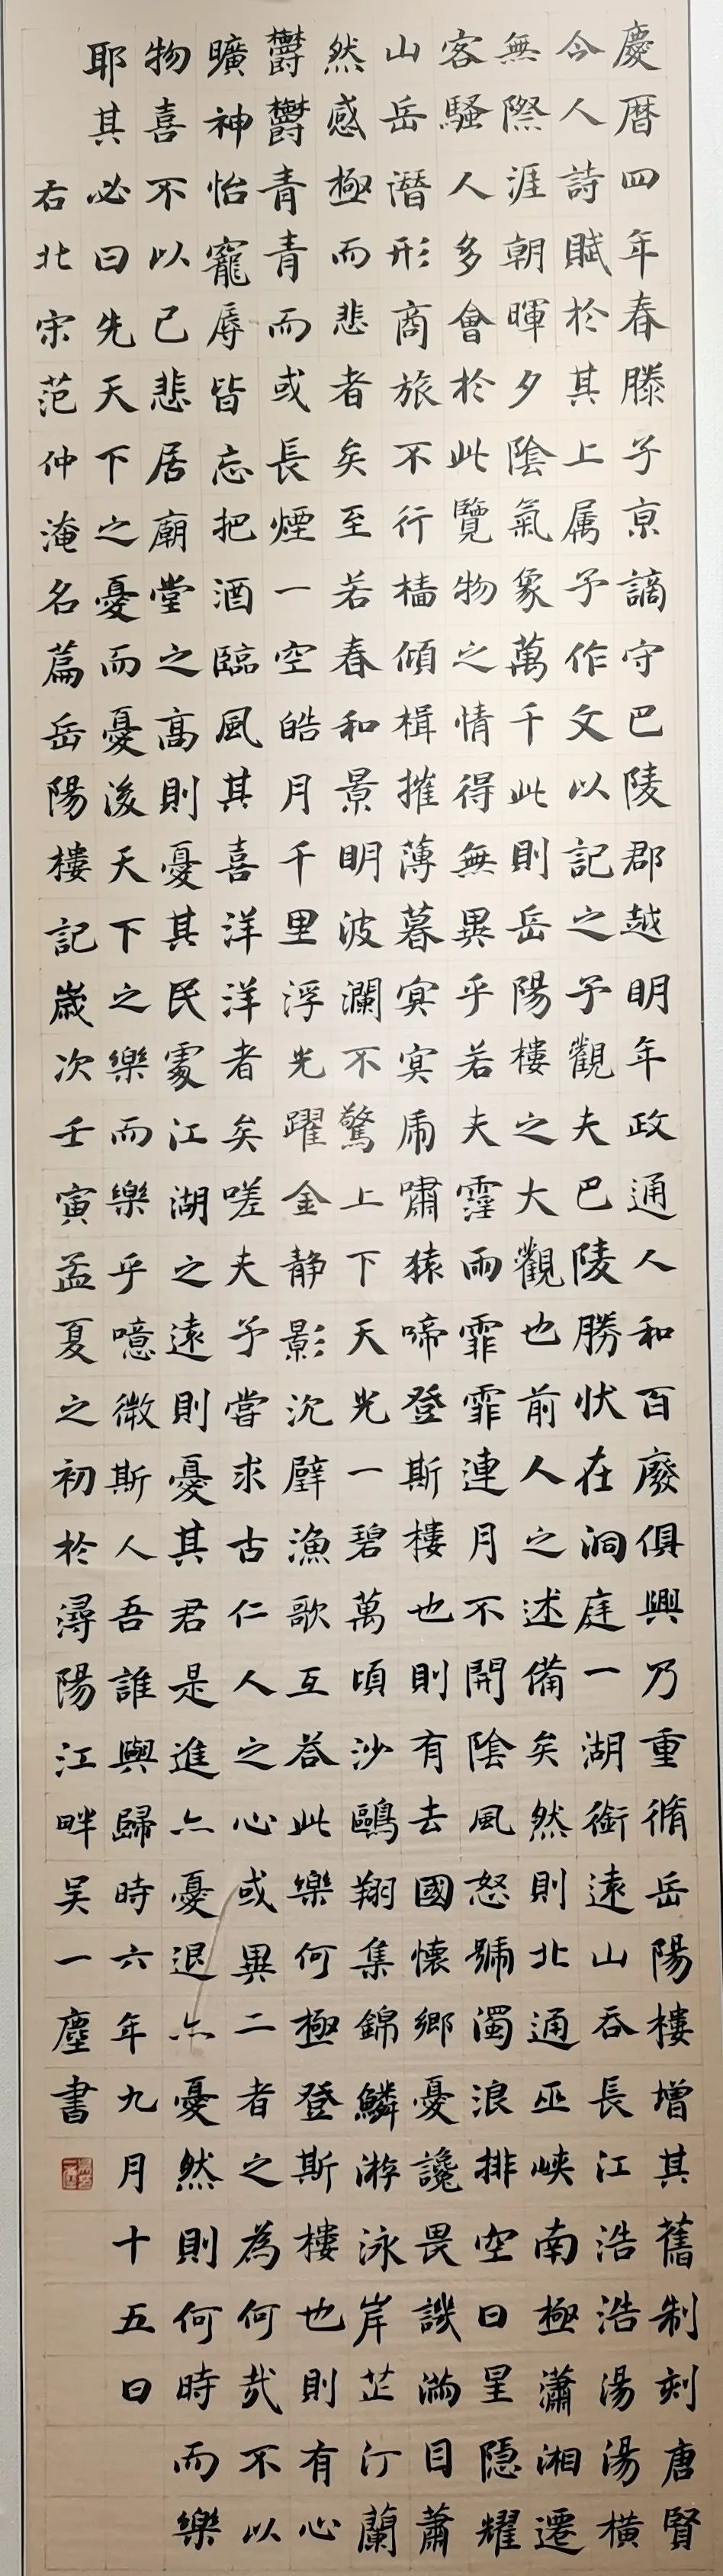 慶暦四年春滕子亰謫守巴陵郡越明年政通人和百廢俱興乃重脩岳陽樓增其舊制刻唐賢
今人詩賦於其上属予作文以記之予觀夫巴陵勝状在洞庭一湖銜遠山吞長江浩浩湯湯橫
無際涯朝暉夕陰氣象萬千此則岳陽樓之大觀也前人之述備矣然則北通巫峽南極瀟湘遷
客騷人多會於此覽物之情得無異乎若夫霪雨霏霏連月不開陰風怒號濁浪排空日星隱耀
山岳潛形商旅不行檣傾楫摧薄暮冥冥虎嘯猿啼登斯樓也則有去國懷鄉憂讒畏譏滿目蕭
然感極而悲者矣至若春和景明波瀾不驚上下天光一碧萬頃沙鷗翔集錦鱗游泳岸芷汀蘭
鬱鬱青青而或長煙一空皓月千里浮光躍金静影沉璧漁歌互答此樂何極登斯樓也則有心
曠神怡寵辱皆忘把酒臨風其喜洋洋者矣嗟夫予嘗求古仁人之心或異二者之為何哉不以
物喜不以己悲居廟堂之高則憂其民處江湖之遠則憂其君是進亦憂退亦憂然則何時而樂
耶其必曰先天下之憂而憂後天下之樂而樂乎噫微斯人吾誰與歸時六年九月十五日
右北宋范仲淹名篇岳陽樓記歲次壬寅孟夏之初於潯陽江畔吴一塵書